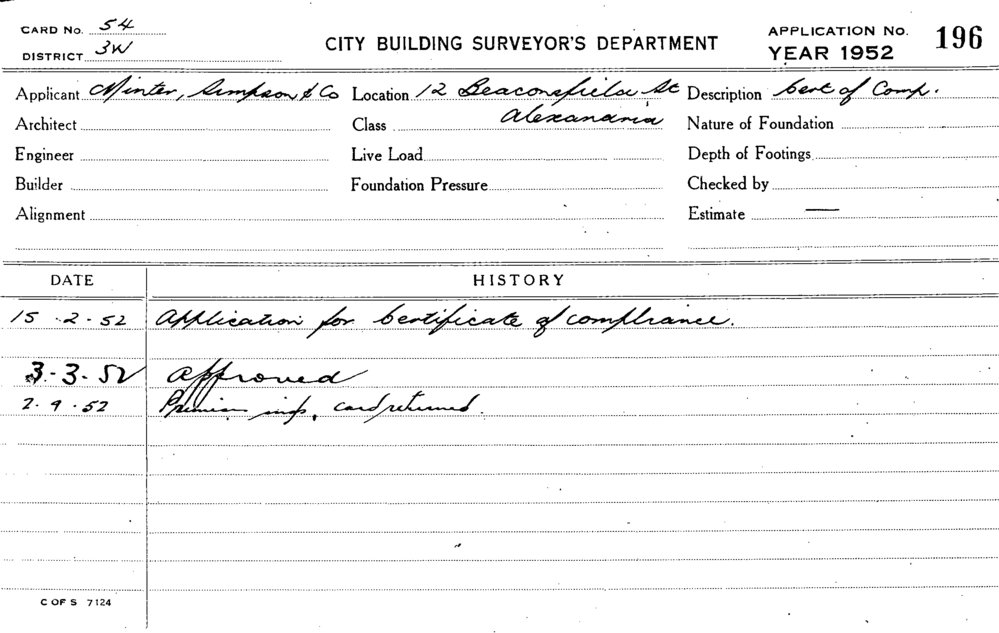 CARD No. 54
DISTRICT 3W
CITY BUILDING SURVEYOR'S DEPARTMENT
APPLICATION No. 196
YEAR 1952
Applicant Minter, Simpson & Co Location 12 Beaconsfield St Description Cert of Comp.
Alexandria
Architect Class Nature of Foundation
Engineer Live Load Depth of Footings
Builder Foundation Pressure Checked by
Alignment Estimate —
DATE HISTORY
15.2.52 Application for Certificate of compliance.
3-3-52 Approved
2.9.52 card returned.
C OF S 7124